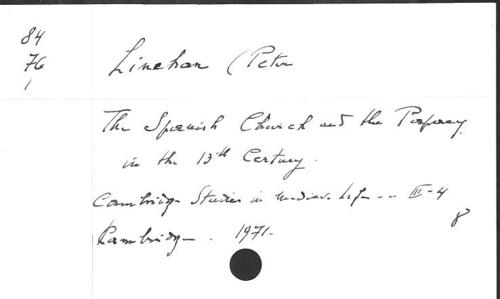 84
76
1
Linehan (Peter
The Spanish Church and the Papacy
in the 13th Century.
Cambridge Studies in mediev. Life -- III-4
8
Cambridge . 1971.